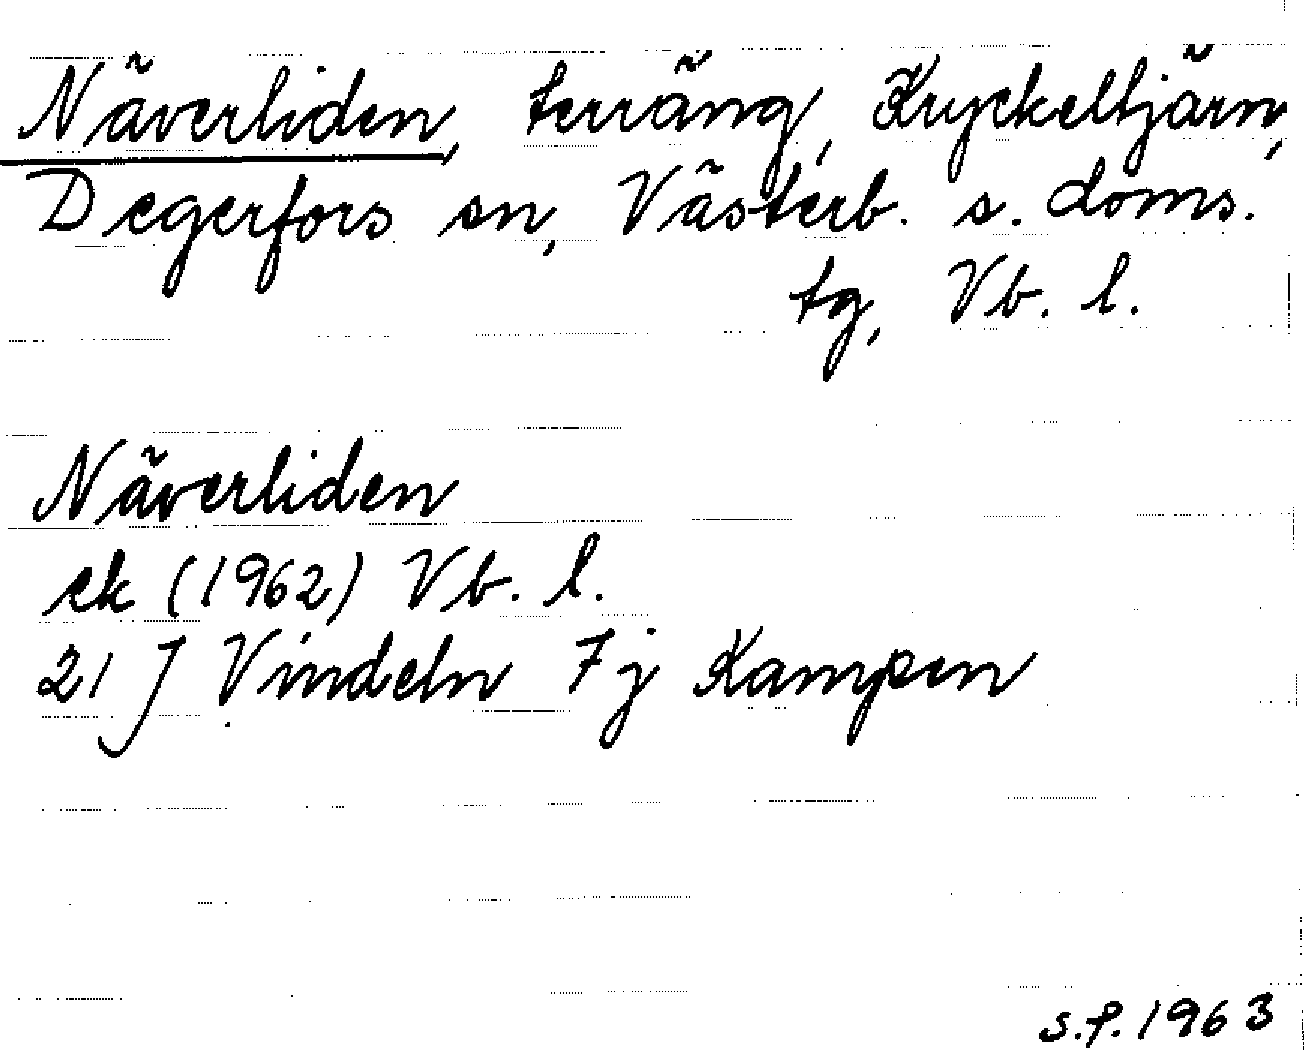 Näverliden, terräng, Kryckeltjärn,
Degerfors sn, Västerb. s. doms.
tg, Vb. l.
Näverliden
ek (1962) Vb. l.
21 J Vindeln 7j Kampen
s.f. 1963